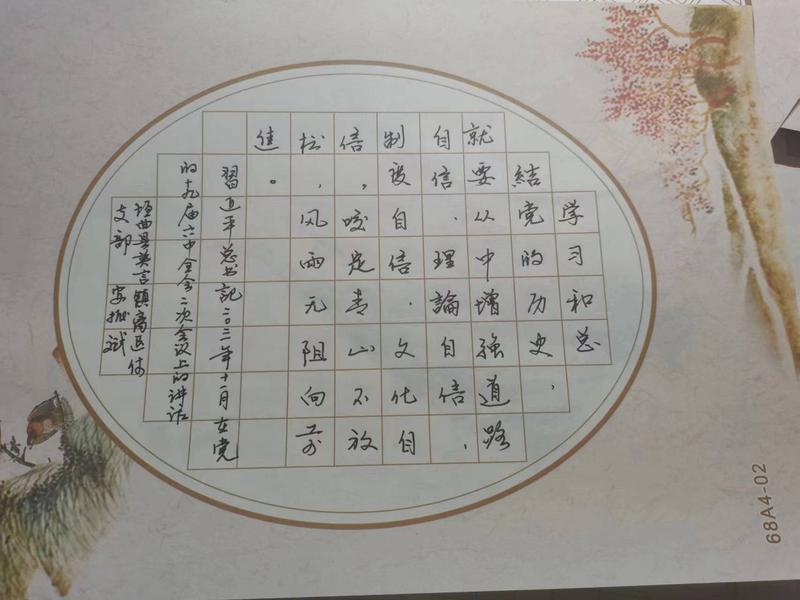 学习和总
结党的历史，
就要从中增强道路
自信、理論自信、
制度自信、文化自
信，咬定青山不放
松，风雨无阻向前
進。
習近平总书記二〇二一年十一月在党
的十九届六中全会二次会议上的讲话
垣曲县英言镇离退休
支部 安
68A4-02